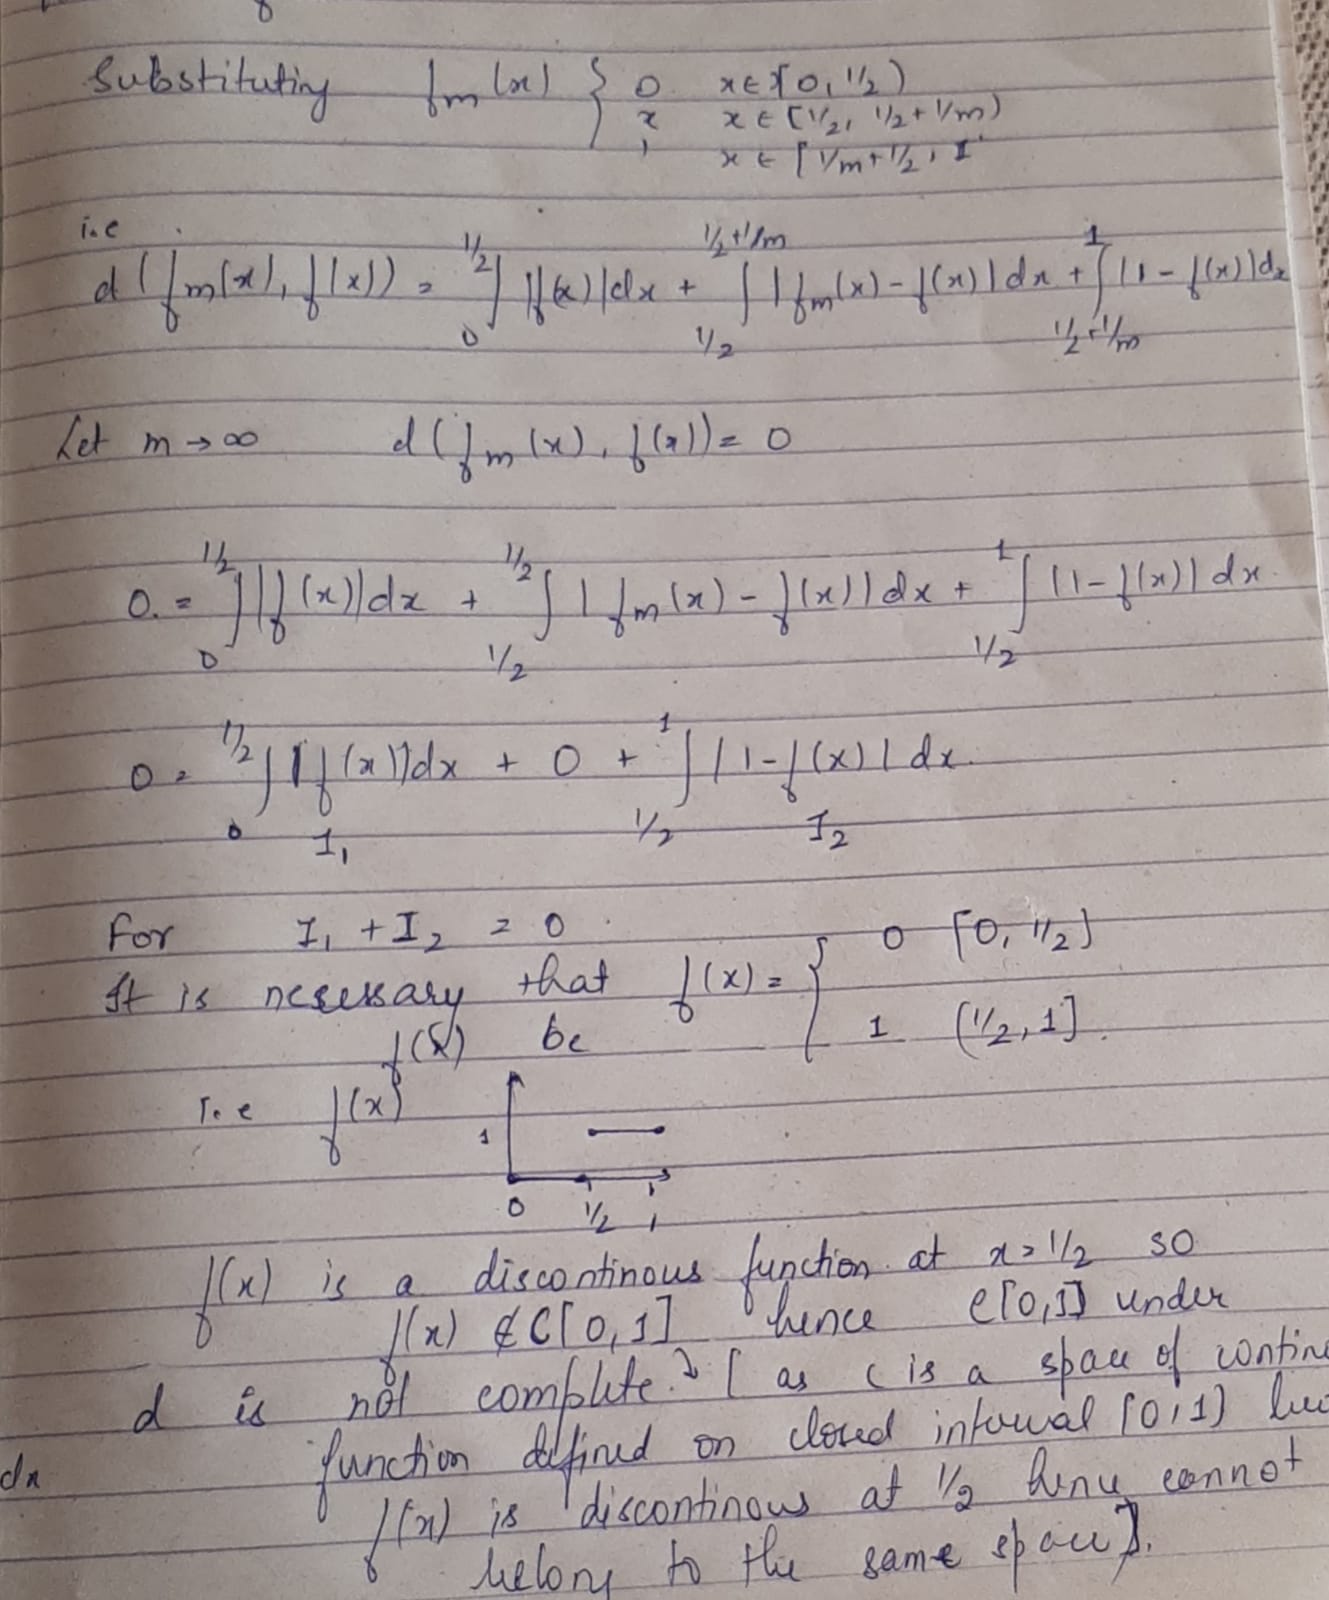 Substituting fm(x) { 0 x∈[0, 1/2)
x x∈[1/2, 1/2+1/m)
1 x∈[1/m+1/2, 1
i.e
d(fm(x), f(x)) = ∫_0^{1/2} |f(x)|dx + ∫_{1/2}^{1/2+1/m} |fm(x)-f(x)|dx + ∫_{1/2+1/m}^1 |1-f(x)|dx
Let m→∞ d(fm(x), f(x)) = 0
0. = ∫_0^{1/2} |f(x)|dx + ∫_{1/2}^{1/2} |fm(x)-f(x)|dx + ∫_{1/2}^1 |1-f(x)|dx.
0 = ∫_0^{1/2} |f(x)|dx + 0 + ∫_{1/2}^1 |1-f(x)|dx.
I1 I2
For I1 + I2 = 0
It is necessary that f(x) = { 0 [0, 1/2]
f(x) be 1 (1/2, 1].
I.e f(x)
1
0 1/2 1
f(x) is a discontinous function at x=1/2 so
f(x) ∉ C[0,1] hence C[0,1] under
d is not complete. [as C is a space of contin
function defined on closed interval [0,1)
dx
f(x) is discontinous at 1/2 hence cannot
belong to the same space].